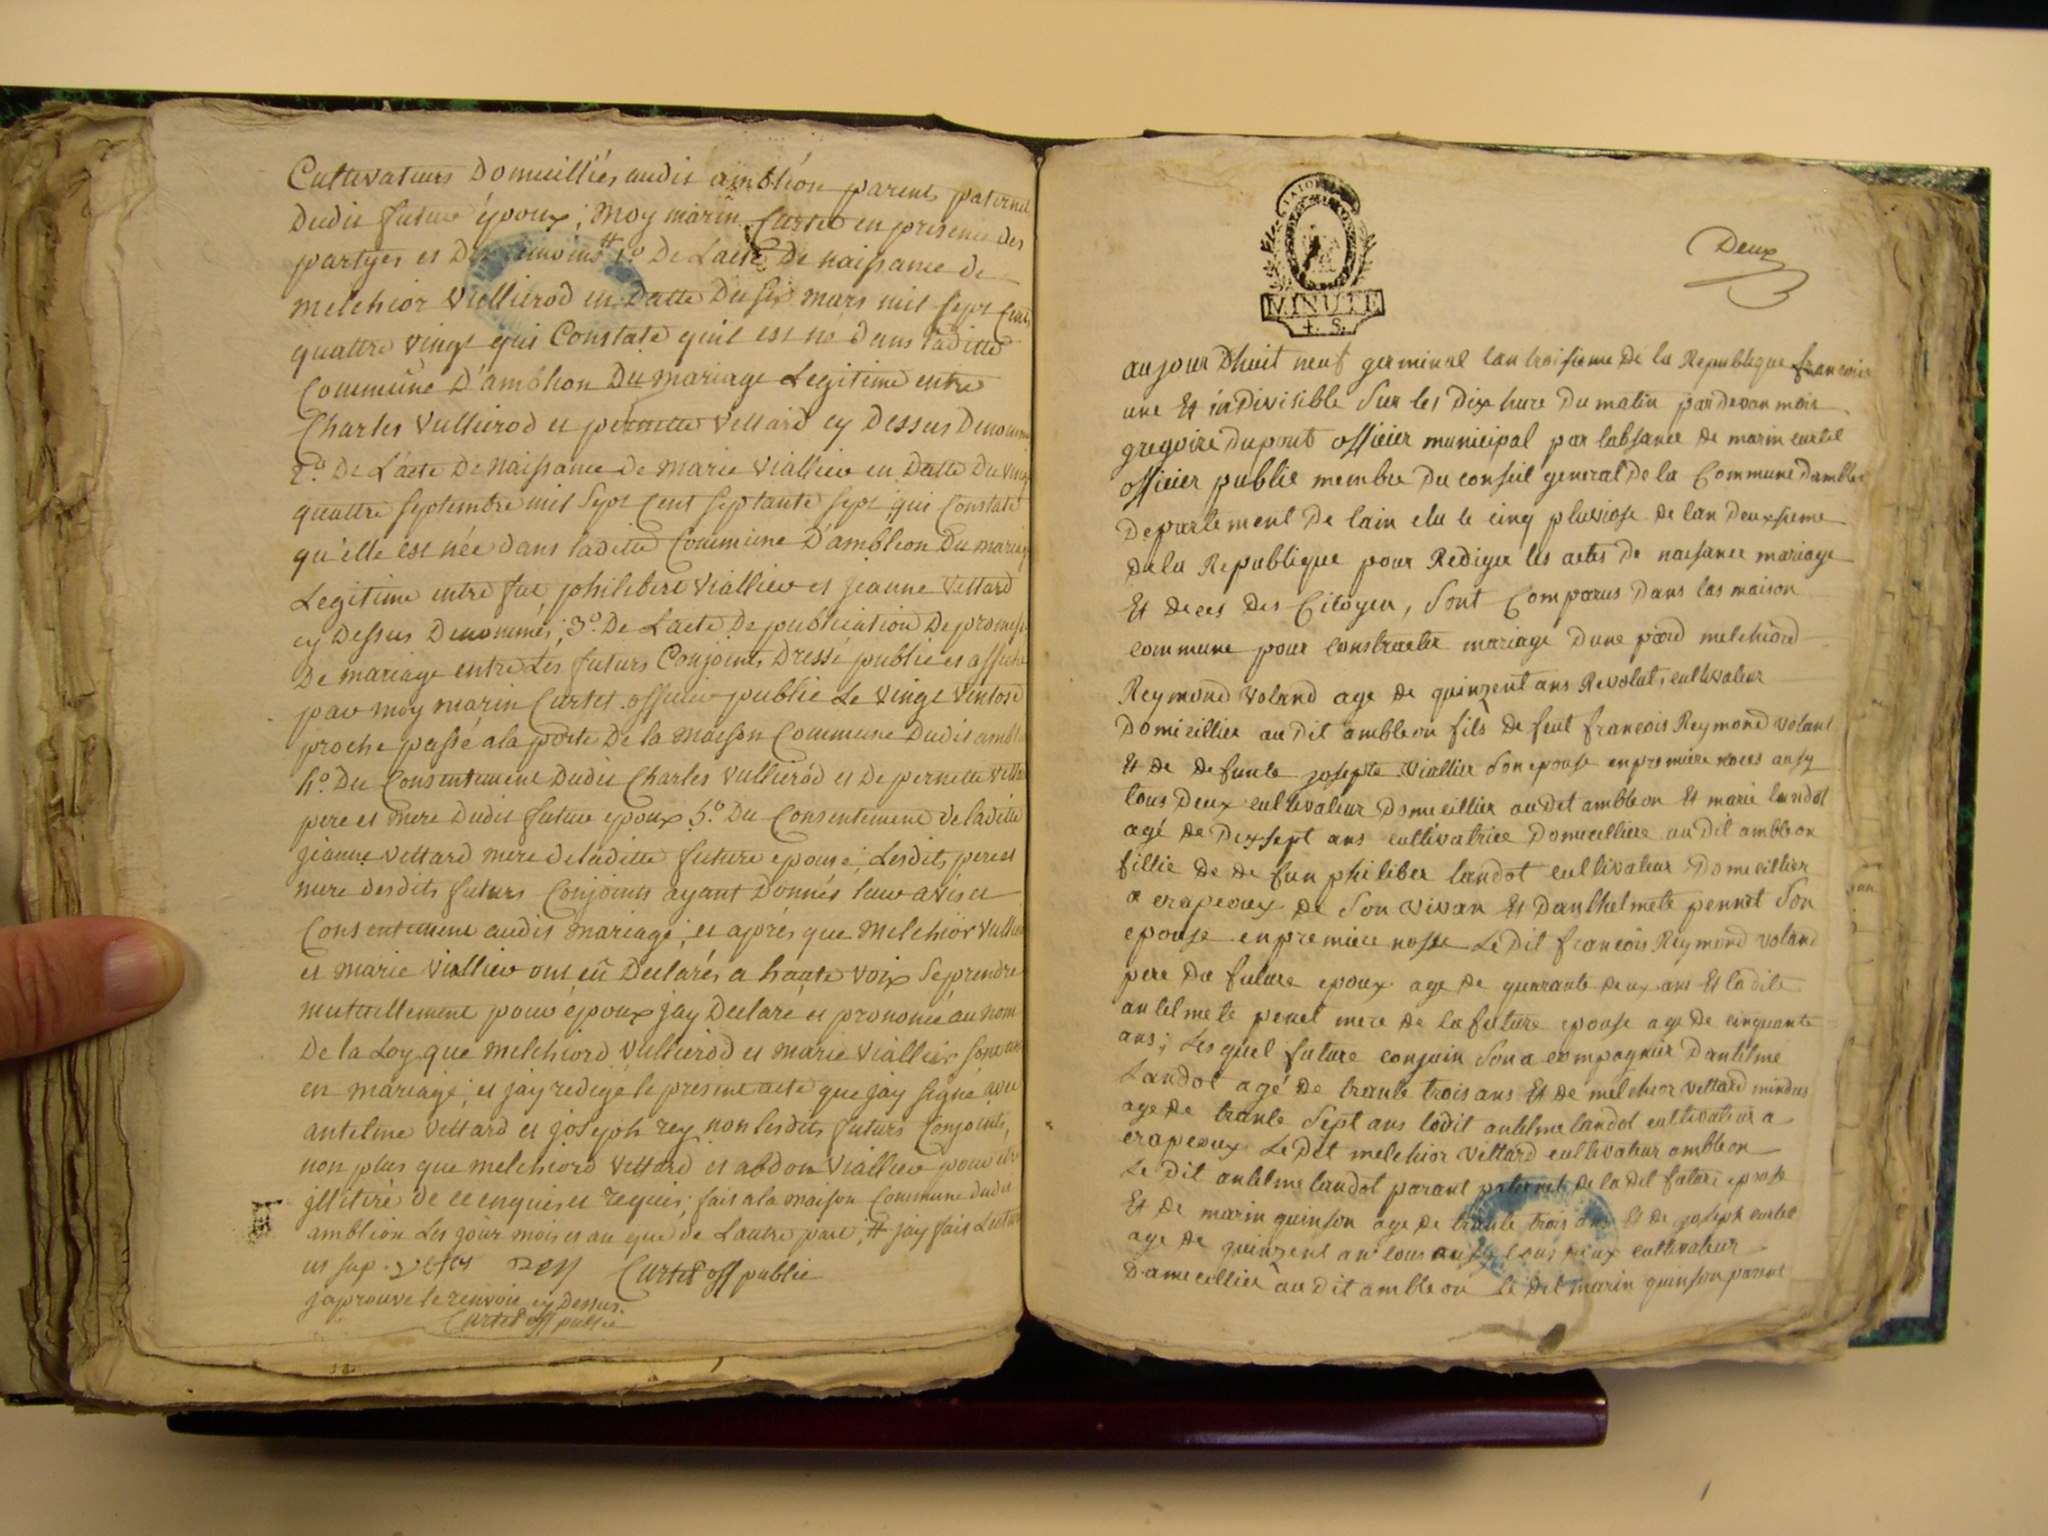 Cultivateurs Domicilliés audit ambléon parents paternel
dudit futur époux; moy marin Curtet en presence des
partyes et des temoins # 1º De L'acte De naissance de
melchior Vullierod en Datte Du six mars mil sept Cent
quattre vingt qui Constate quil est né dans laditte
Commune D'ambléon Du mariage Legitime entre
Charles Vullierod et pernette Vettard cy Dessus Denommé
2º. De L'acte De Naissance de marie Viallier en Datte Du vingt
quattre septembre mil sept Cent septante sept qui Constate
qu'elle est née dans laditte Commune D'ambléon Du mariage
Legitime entre feu philibert Vialliev et jeanne Vettard
cy Dessus Denommés; 3º. De L'acte De publication De promesse
De mariage entre Les futurs Conjoints Dressé publié et affiché
par moy marin Curtet officier public Le Vingt Ventose
proche passé a la porte De la Maison Commune Dudit amblé
4º. Du Consentement Dudit Charles Vullierod et De pernette Vettard
pere et mere Dudit futur epoux 5º. Du Consentement de laditte
jeanne Vettard mere de laditte future epouse; Lesdits peres et
mere desdits futurs Conjoints ayant Donnés leur avis et
Consentement audit mariage, et après que Melchior Vullierod
et marie Viallier ont eû Declarés a haute voix Se prendre
mutuellement pour époux jay Declaré et prononcé au nom
De la Loy que melchiord Vullierod et marie Viallier sont unis
en mariage; et jay redigé le present acte que jay signé avec
antelme Vettard et joseph rey non lesdits futurs Conjoints,
non plus que melchiord Vettard et abdon Viallier pour être
illitiré de ce enquis et requis; fait a la maison Commune dudit
ambléon Les jour mois et an que de L'autre part; # jay fait Lecture
ut sup. Vetar Rey Curtet off public
japrouve le renvoie cy Dessus.
Curtet off public
Deux
MINUTE
4. S.
aujourdhuit neuf germinal lan troisieme de la Republique francoise
une Et indivisible Sur les Dix hure Du matin pardevan moir
gregoire dupont officier municipal par labsance de marin curtet
officier public membre Du conseil general De la Commune Damble
Departement De lain elu le cinq pluviose de lan deuxsieme
dela Republique pour Rediger les actes de naisance mariage
Et deces des Citoyen, Sont Comparus Dans las maison
commune pour constracter mariage Dune pard melchiord
Reymond Voland age de quinzent ans Revolut, cultivateur
Domicillier au dit ambleon fils de feut francois Reymond volant
Et de defunte josepte Viallier Son epouse enpremiere noces ausy
tous Deux cultivateur Domicillier audet ambleon Et marie landot
agé de Dixsept ans cultivatrice Domicilliere au dit ambleon
fillie de de fun philiber landot cultivateur Domicillier
a crapeoux de Son vivan Et Danthelmete pennet Son
epouse enpremiere nosse Le Dit francois Reymond voland
pere du future epoux age de quarante deux ans Et ladite
antelmete penet mere de la future epouse age de cinquante
ans; Les quel future conjoin Son a compagnier Dantelme
Landot agé de trante trois ans Et de melchior Vettard mindus
age de trante Sept ans ledit antelme landot cultivateur a
crapeoux Le Det melchior Vettard cultivateur ambleon
Le dit antelme landot parant paternet de la dit future epose
Et de marin quinson age de trante trois ans Et de joseph curtet
age de quinzent an tous ausy tous deux cultivateur
Damecillier au dit ambleon le det marin quinson parant